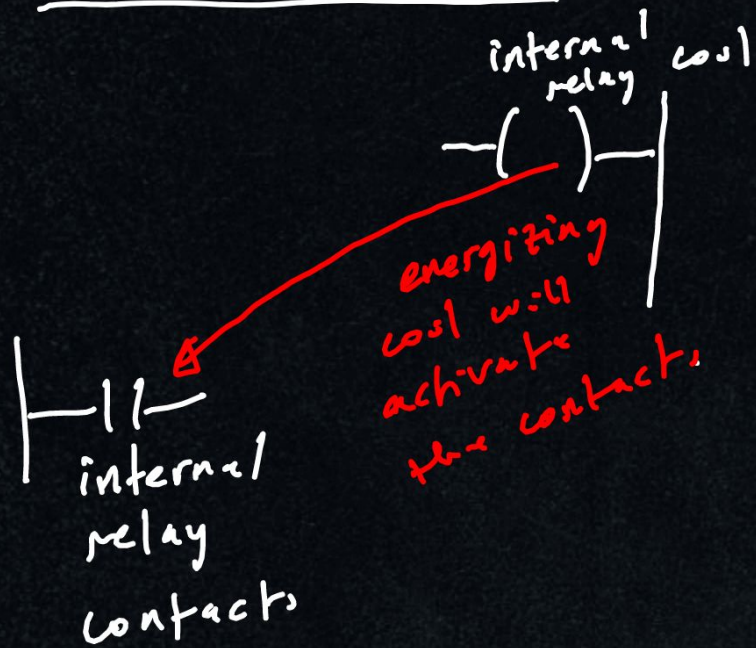 internal
relay coil
energizing
coil will
activate
the contacts
internal
relay
contacts